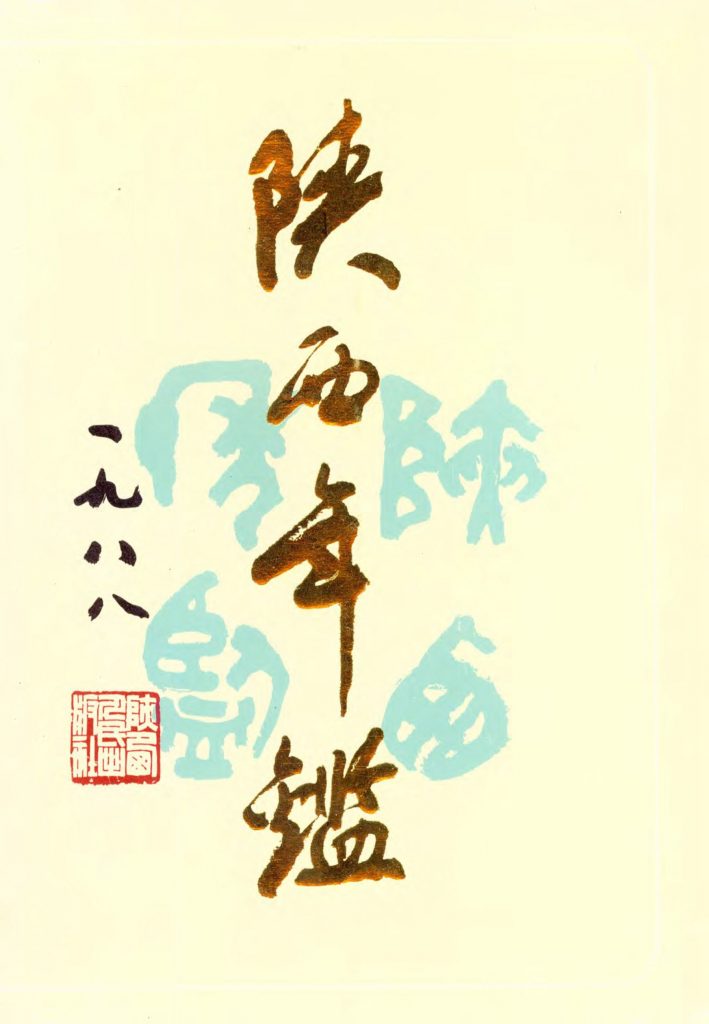 陕西年鑑
一九八八
陕西年鑑
陕西人民出版社